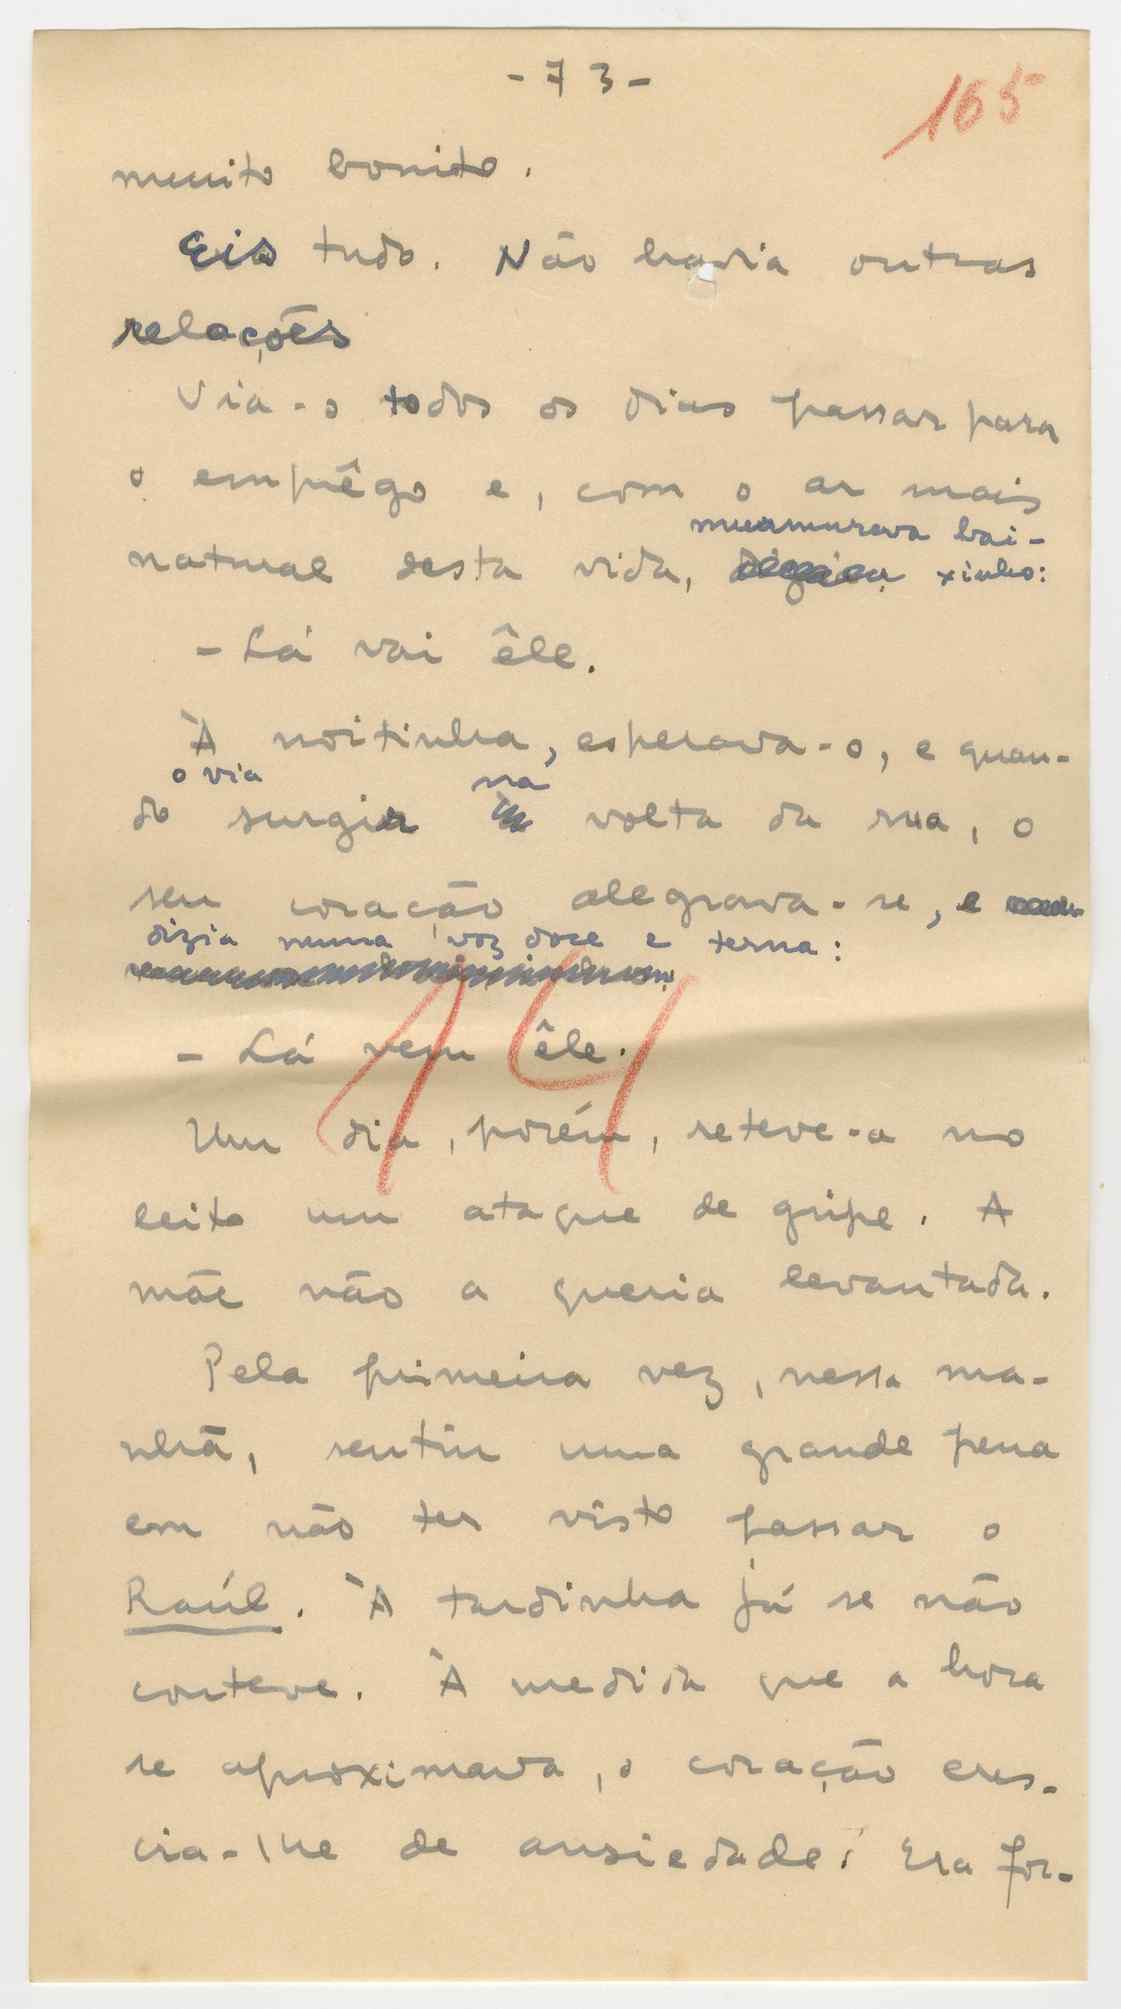 - 73 -
165
muito bonito.
Eis tudo. Não havia outras
relações
Via-o todos os dias passar para
o emprêgo e, com o ar mais
murmurava bai-
natural desta vida, xinho:
- Lá vai êle.
À noitinha, esperava-o, e quan-
o via na
do surgir volta da rua, o
seu coração alegrava-se, e
dizia numa voz doce e terna:
- Lá vem êle.
14
Um dia, porém, reteve-a no
leito um ataque de gripe. A
mãe não a queria levantada.
Pela primeira vez, nessa ma-
nhã, sentiu uma grande pena
em não ter visto passar o
Raúl. À tardinha já se não
conteve. À medida que a hora
se aproximava, o coração cres-
cia-lhe de ansiedade. Era for-